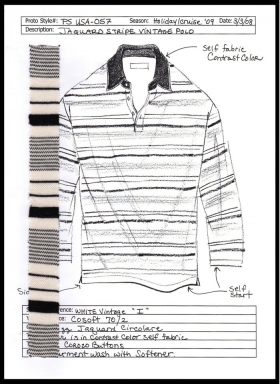 Proto Style#: PS USA-057 Season: Holiday/Cruise '09 Date: 3/3/08
Description: JAQUARD STRIPE VINTAGE POLO
Self fabric
Contrast Color
Self
Start
ence: WHITE Vintage "I"
Cosoft 70/2
Jaquard Circolare
is in Contrast Color self fabric
Corozo Buttons
arment wash with Softener